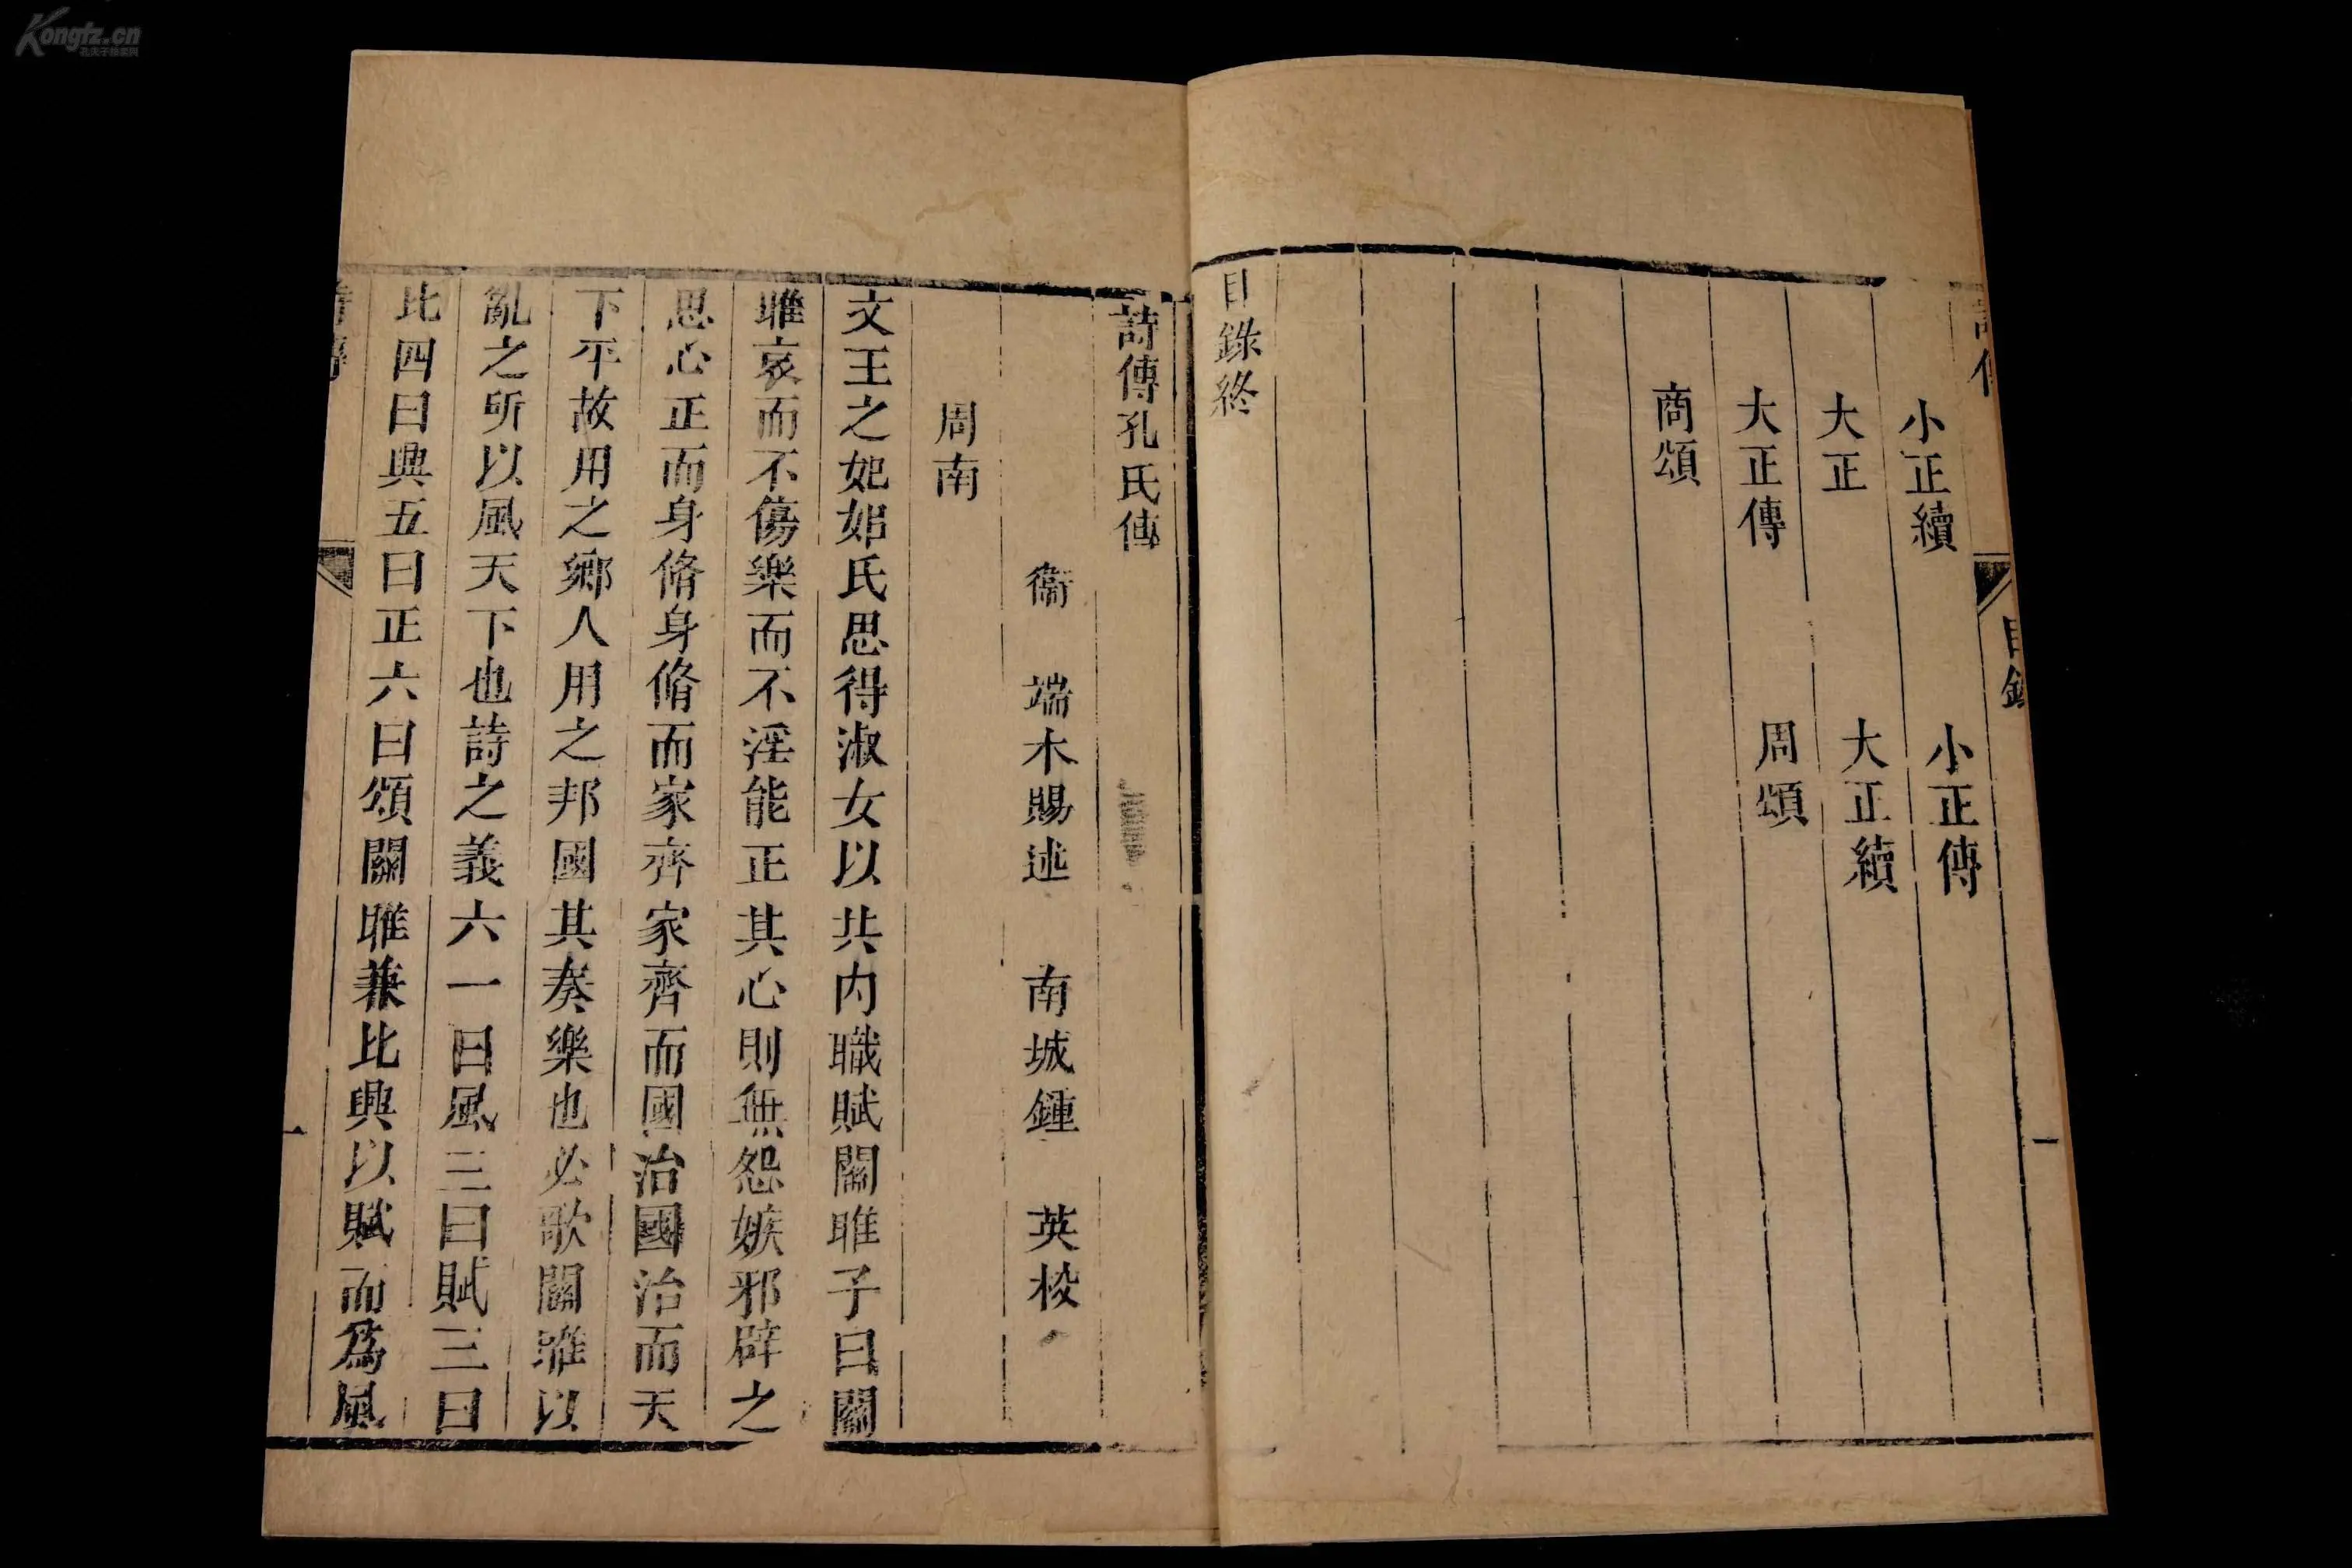 Kongfz.cn
小正續　小正傳
大正　大正續
大正傳　周頌
商頌
目錄終
目錄
一
詩傳孔氏傳
衞　端木賜述　南城鍾　英校
周南
文王之妃姒氏思得淑女以共内職賦關雎子曰關
雎哀而不傷樂而不淫能正其心則無怨嫉邪辟之
思心正而身脩身脩而家齊家齊而國治國治而天
下平故用之鄉人用之邦國其奏樂也必歌關雎以
亂之所以風天下也詩之義六一曰風二曰賦三曰
比四曰興五曰正六曰頌關雎兼比興以賦而爲風
一